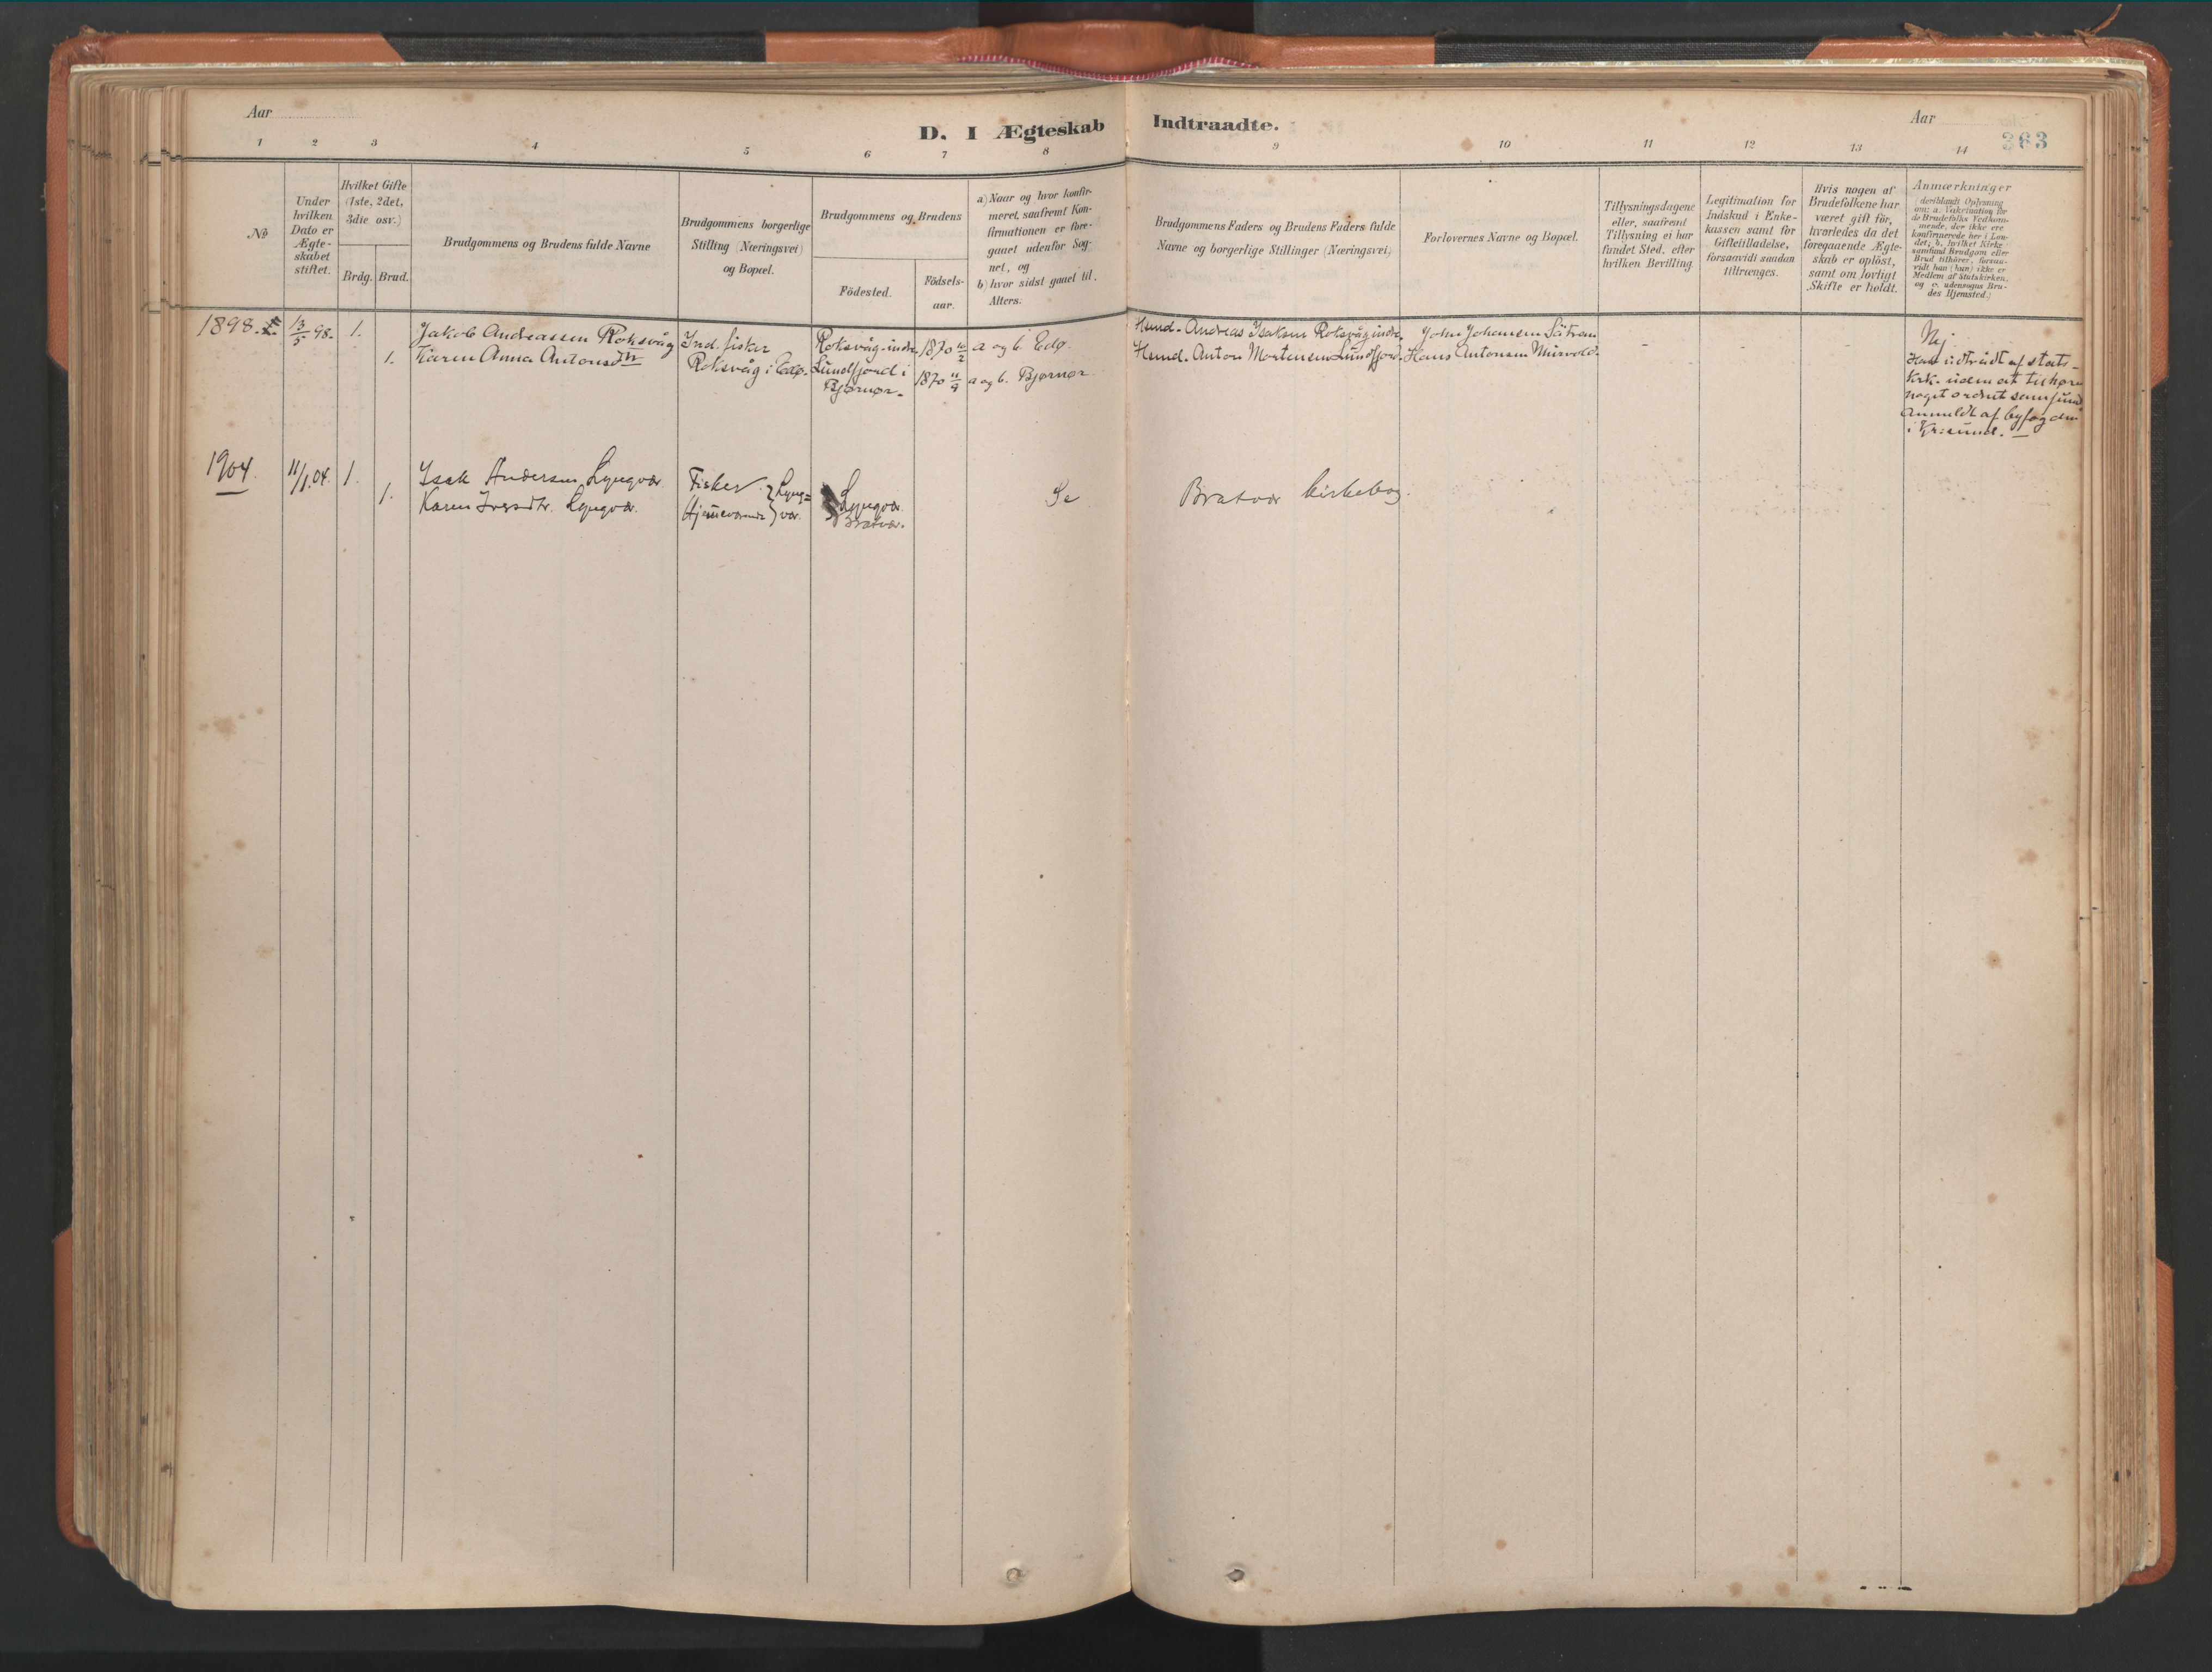 Aar
D. I Ægteskab Indtraadte.
Aar
363
1 2 3 4 5 6 7 8 9 10 11 12 13 14
No
Under hvilken Dato er Ægte-skabet stiftet.
Hvilket Gifte (1ste, 2det, 3die osv.)
Brdg. Brud.
Brudgommens og Brudens fulde Navne
Brudgommens borgerlige Stilling (Næringsvei) og Bopæl.
Brudgommens og Brudens
Födested. Födsels-aar.
a) Naar og hvor konfir-meret, saafremt Kon-firmationen er fore-gaaet udenfor Sog-net, og
b) hvor sidst gaaet til Alters.
Brudgommens Faders og Brudens Faders fulde Navne og borgerlige Stillinger (Næringsvei)
Forlovernes Navne og Bopæl.
Tillysningsdagene eller, saafremt Tillysning ei har fundet Sted, efter hvilken Bevilling.
Legitimation for Indskud i Enke-kassen samt for Giftetilladelse, forsaavidt saadan tiltrænges.
Hvis nogen af Brudefolkene har været gift för, hvorledes da det foregaaende Ægte-skab er oplöst, samt om lovligt Skifte er holdt.
Anmærkninger (deriblandt Oplysning om: a. Vakcination for de Brudefolks Vedkom-mende, der ikke ere konfirmerede her i Lan-det; b. hvilket Kirke-samfund Brudgom eller Brud tilhörer, forsaa-vidt han (hun) ikke er Medlem af Statskirken, og c. udensogns Bru-des Hjemsted.)
1898. 13/5 98. 1. Jakob Andreassen Roksvåg Ind. fisker Roksvåg-indre 1870 a og b. Edø. Hsmd. Andreas Isaksen Roksvåg indre. John Johansen Sätran - - Nej
1. Karen Anna Antonsdtr Roksvåg i Edø. Lundfjord i Bjørnør. 1870 11/9 a og b. Bjørnør. Hsmd. Anton Mortensen Lundfjord. Hans Antonsen Murvold.
Har udtrådt af stats-
kirk. uden at tilhøre
noget ordnet samfund
Anmeldt af byfogden
i Kr:sund.
1904. 11/1.04. 1. Isak Andersen Lyngvær Fisker Lyng= Lyngvær Se Bratvær kirkebog.
1. Karen Iversdtr. Lyngvær. Hjemmeværende vær. Bratvær.